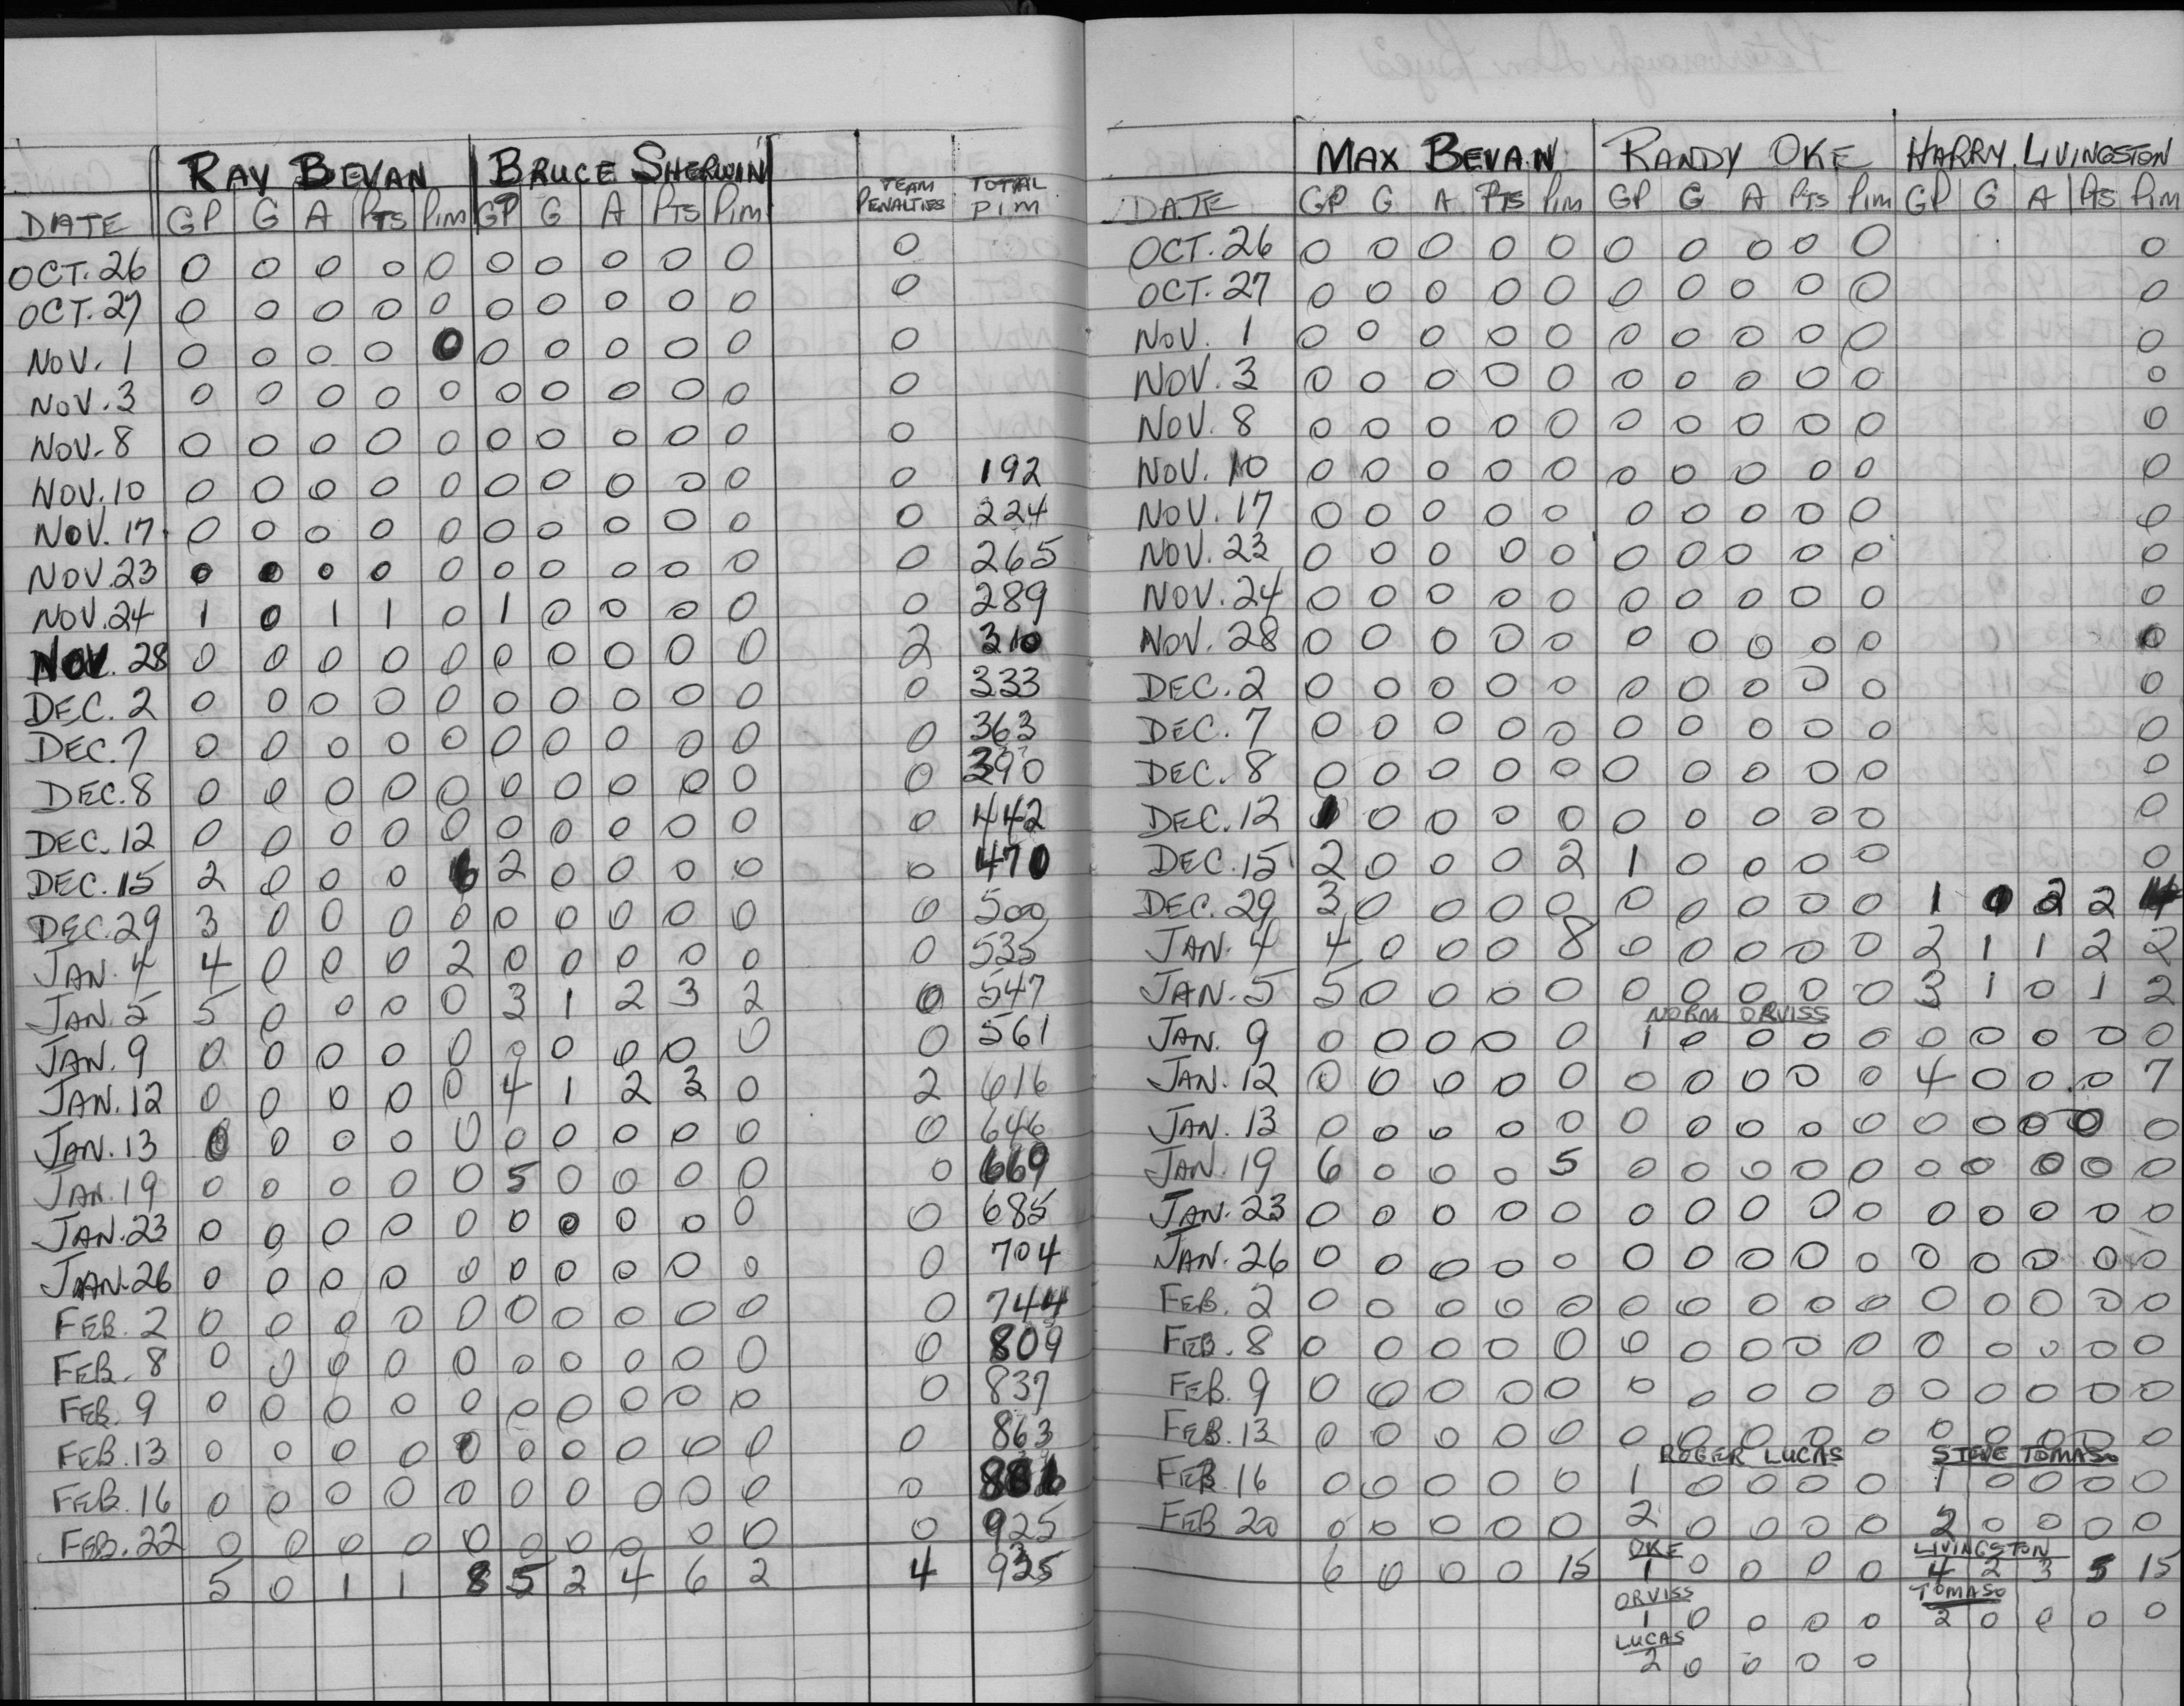 RAY BEVAN BRUCE SHERWIN TEAM PENALTIES TOTAL PIM
DATE GP G A PTS PIM GP G A PTS PIM
OCT. 26 0 0 0 0 0 0 0 0 0 0 0
OCT. 27 0 0 0 0 0 0 0 0 0 0 0
NOV. 1 0 0 0 0 0 0 0 0 0 0 0
NOV. 3 0 0 0 0 0 0 0 0 0 0 0
NOV. 8 0 0 0 0 0 0 0 0 0 0 0
NOV. 10 0 0 0 0 0 0 0 0 0 0 0 192
NOV. 17 0 0 0 0 0 0 0 0 0 0 0 224
NOV. 23 0 0 0 0 0 0 0 0 0 0 0 265
NOV. 24 1 0 1 1 0 1 0 0 0 0 0 289
NOV. 28 0 0 0 0 0 0 0 0 0 0 2 310
DEC. 2 0 0 0 0 0 0 0 0 0 0 0 333
DEC. 7 0 0 0 0 0 0 0 0 0 0 0 363
DEC. 8 0 0 0 0 0 0 0 0 0 0 0 390
DEC. 12 0 0 0 0 0 0 0 0 0 0 0 442
DEC. 15 2 0 0 0 6 2 0 0 0 0 0 470
DEC. 29 3 0 0 0 0 0 0 0 0 0 0 500
JAN. 4 4 0 0 0 2 0 0 0 0 0 0 535
JAN. 5 5 0 0 0 0 3 1 2 3 2 0 547
JAN. 9 0 0 0 0 0 0 0 0 0 0 0 561
JAN. 12 0 0 0 0 0 4 1 2 3 0 2 616
JAN. 13 0 0 0 0 0 0 0 0 0 0 0 646
JAN. 19 0 0 0 0 0 5 0 0 0 0 0 669
JAN. 23 0 0 0 0 0 0 0 0 0 0 0 685
JAN. 26 0 0 0 0 0 0 0 0 0 0 0 704
FEB. 2 0 0 0 0 0 0 0 0 0 0 0 744
FEB. 8 0 0 0 0 0 0 0 0 0 0 0 809
FEB. 9 0 0 0 0 0 0 0 0 0 0 0 837
FEB. 13 0 0 0 0 0 0 0 0 0 0 0 863
FEB. 16 0 0 0 0 0 0 0 0 0 0 0
FEB. 22 0 0 0 0 0 0 0 0 0 0 0 925
5 0 1 1 8 5 2 4 6 2 4 925
MAX BEVAN RANDY OKE HARRY LIVINGSTON
DATE GP G A PTS PIM GP G A PTS PIM GP G A PTS PIM
OCT. 26 0 0 0 0 0 0 0 0 0 0 0
OCT. 27 0 0 0 0 0 0 0 0 0 0 0
NOV. 1 0 0 0 0 0 0 0 0 0 0 0
NOV. 3 0 0 0 0 0 0 0 0 0 0 0
NOV. 8 0 0 0 0 0 0 0 0 0 0 0
NOV. 10 0 0 0 0 0 0 0 0 0 0 0
NOV. 17 0 0 0 0 0 0 0 0 0 0 0
NOV. 23 0 0 0 0 0 0 0 0 0 0 0
NOV. 24 0 0 0 0 0 0 0 0 0 0 0
NOV. 28 0 0 0 0 0 0 0 0 0 0 0
DEC. 2 0 0 0 0 0 0 0 0 0 0 0
DEC. 7 0 0 0 0 0 0 0 0 0 0 0
DEC. 8 0 0 0 0 0 0 0 0 0 0 0
DEC. 12 1 0 0 0 0 0 0 0 0 0 0
DEC. 15 2 0 0 0 2 1 0 0 0 0 0
DEC. 29 3 0 0 0 0 0 0 0 0 0 1 0 2 2 4
JAN. 4 4 0 0 0 8 0 0 0 0 0 2 1 1 2 2
JAN. 5 5 0 0 0 0 0 0 0 0 0 3 1 0 1 2
NORM ORVISS
JAN. 9 0 0 0 0 0 1 0 0 0 0 0 0 0 0 0
JAN. 12 0 0 0 0 0 0 0 0 0 0 4 0 0 0 7
JAN. 13 0 0 0 0 0 0 0 0 0 0 0 0 0 0 0
JAN. 19 6 0 0 0 5 0 0 0 0 0 0 0 0 0 0
JAN. 23 0 0 0 0 0 0 0 0 0 0 0 0 0 0 0
JAN. 26 0 0 0 0 0 0 0 0 0 0 0 0 0 0 0
FEB. 2 0 0 0 0 0 0 0 0 0 0 0 0 0 0 0
FEB. 8 0 0 0 0 0 0 0 0 0 0 0 0 0 0 0
FEB. 9 0 0 0 0 0 0 0 0 0 0 0 0 0 0 0
FEB. 13 0 0 0 0 0 0 0 0 0 0 0 0 0 0 0
ROGER LUCAS STEVE TOMASO
FEB. 16 0 0 0 0 0 1 0 0 0 0 1 0 0 0 0
FEB 20 0 0 0 0 0 2 0 0 0 0 2 0 0 0 0
OKE LIVINGSTON
6 0 0 0 15 1 0 0 0 0 4 2 3 5 15
ORVISS TOMASO
1 0 0 0 0 2 0 0 0 0
LUCAS
2 0 0 0 0